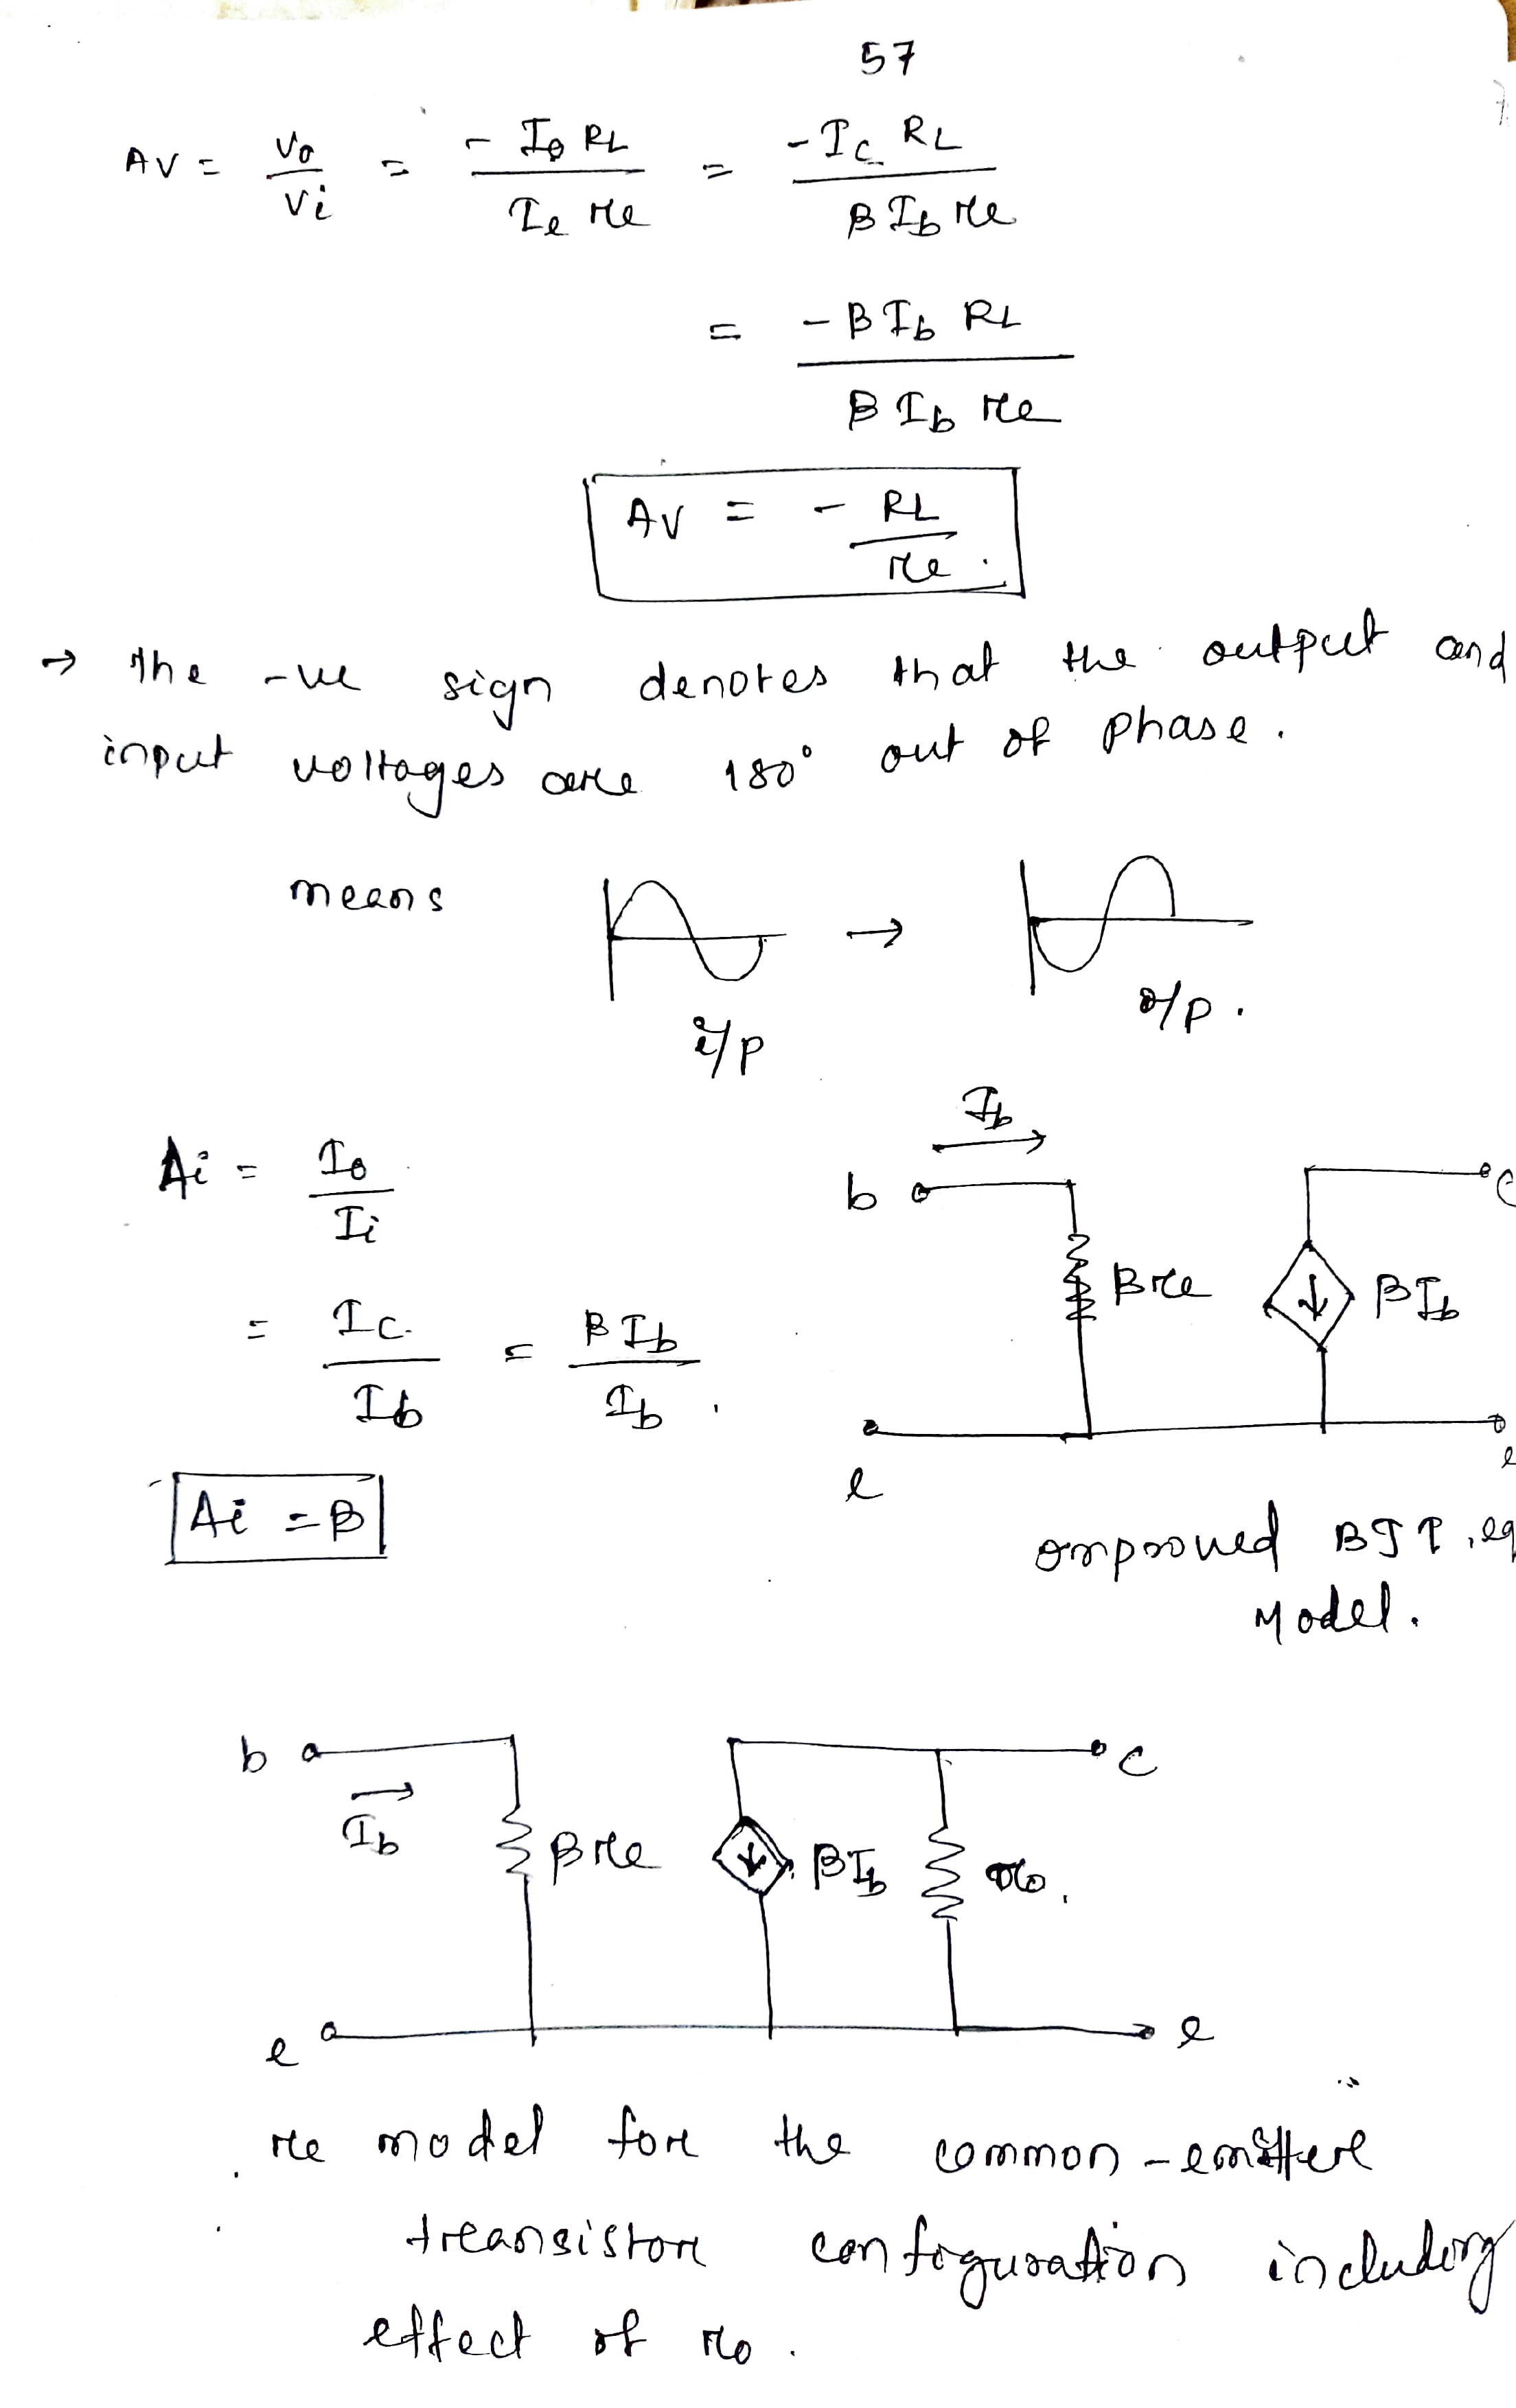 57
AV = Vo/Vi = -Io RL / Ie re = -Ic RL / βIb re
= -βIb RL / βIb re
AV = - RL/re .
→ The -ve sign denotes that the output and
input voltages are 180° out of phase.
means → 
i/p o/p.
Ai = Io/Ii
= Ic/Ib = βIb/Ib .
Ai = β
Ib
b c
βre βIb
e e
BJT eq
Model.
b c
Ib βre βIb ro.
e e
re model for the common-emitter
transistor configuration including
effect of ro.